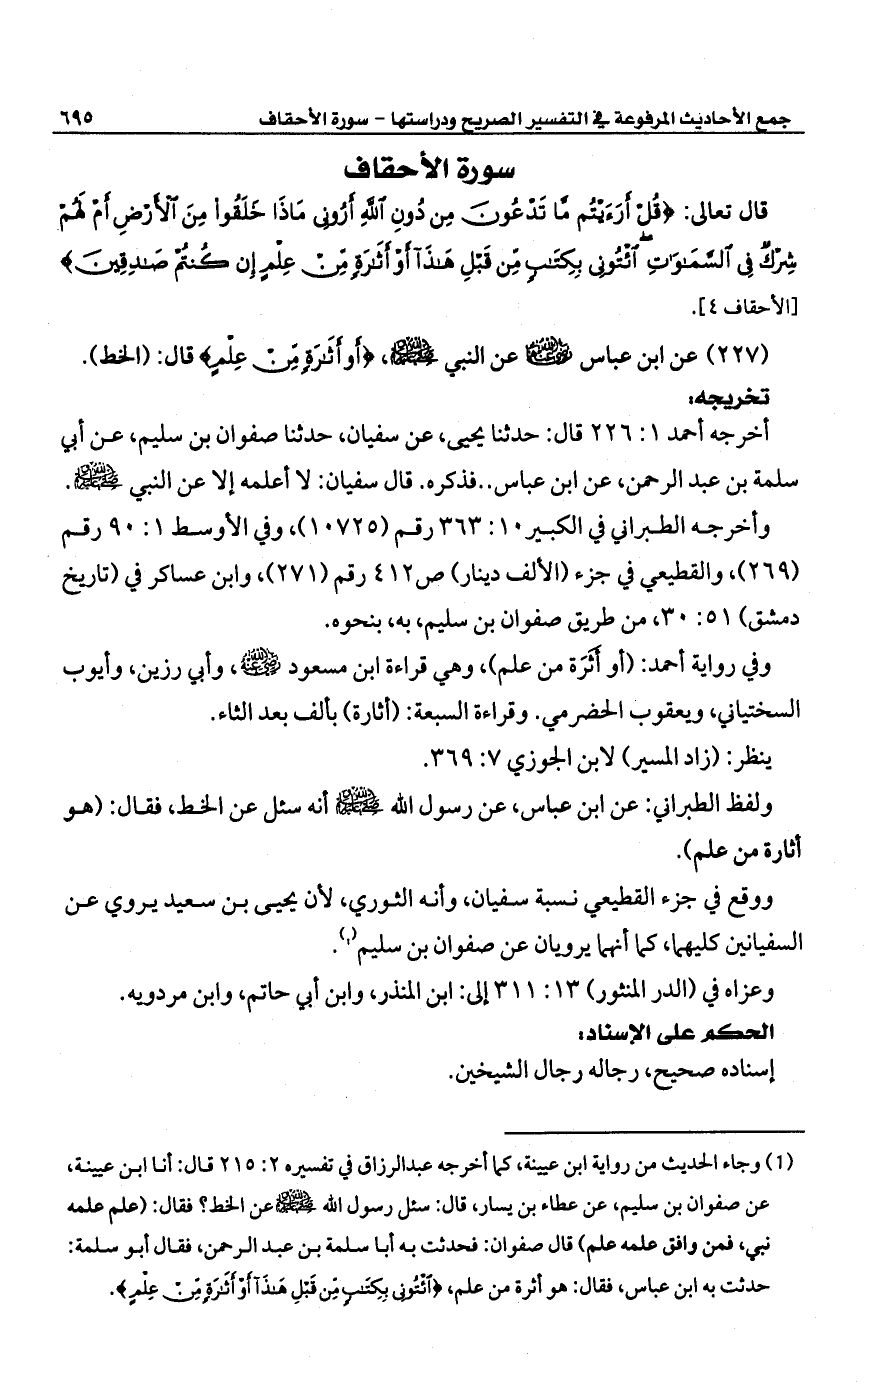 جمع الأحاديث المرفوعة في التفسير الصريح ودراستها - سورة الأحقاف ٦٩٥
سورة الأحقاف
قال تعالى: ﴿قُلْ أَرَءَيْتُم مَّا تَدْعُونَ مِن دُونِ ٱللَّهِ أَرُونِى مَاذَا خَلَقُوا۟ مِنَ ٱلْأَرْضِ أَمْ لَهُمْ
شِرْكٌ فِى ٱلسَّمَٰوَٰتِ ۖ ٱئْتُونِى بِكِتَٰبٍ مِّن قَبْلِ هَٰذَآ أَوْ أَثَٰرَةٍ مِّنْ عِلْمٍ إِن كُنتُمْ صَٰدِقِينَ﴾
[الأحقاف ٤].
(٢٢٧) عن ابن عباس رضي الله عنه عن النبي ﷺ، ﴿أَوْ أَثَٰرَةٍ مِّنْ عِلْمٍ﴾ قال: (الخط).
تخريجه:
أخرجه أحمد ١: ٢٢٦ قال: حدثنا يحيى، عن سفيان، حدثنا صفوان بن سليم، عن أبي
سلمة بن عبد الرحمن، عن ابن عباس..فذكره. قال سفيان: لا أعلمه إلا عن النبي ﷺ.
وأخرجه الطبراني في الكبير ١٠: ٣٦٣ رقم (١٠٧٢٥)، وفي الأوسط ١: ٩٠ رقم
(٢٦٩)، والقطيعي في جزء (الألف دينار) ص٤١٢ رقم (٢٧١)، وابن عساكر في (تاريخ
دمشق) ٥١: ٣٠، من طريق صفوان بن سليم، به، بنحوه.
وفي رواية أحمد: (أو أَثَرَة من علم)، وهي قراءة ابن مسعود رضي الله عنه، وأبي رزين، وأيوب
السختياني، ويعقوب الحضرمي. وقراءة السبعة: (أثارة) بألف بعد الثاء.
ينظر: (زاد المسير) لابن الجوزي ٧: ٣٦٩.
ولفظ الطبراني: عن ابن عباس، عن رسول الله ﷺ أنه سئل عن الخط، فقال: (هو
أثارة من علم).
ووقع في جزء القطيعي نسبة سفيان، وأنه الثوري، لأن يحيى بن سعيد يروي عن
السفيانين كليهما، كما أنهما يرويان عن صفوان بن سليم(١).
وعزاه في (الدر المنثور) ١٣: ٣١١ إلى: ابن المنذر، وابن أبي حاتم، وابن مردويه.
الحكم على الإسناد:
إسناده صحيح، رجاله رجال الشيخين.
(1) وجاء الحديث من رواية ابن عيينة، كما أخرجه عبدالرزاق في تفسيره ٢: ٢١٥ قال: أنا ابن عيينة،
عن صفوان بن سليم، عن عطاء بن يسار، قال: سئل رسول الله ﷺ عن الخط؟ فقال: (علم علمه
نبي، فمن وافق علمه علم) قال صفوان: فحدثت به أبا سلمة بن عبد الرحمن، فقال أبو سلمة:
حدثت به ابن عباس، فقال: هو أثرة من علم، ﴿ٱئْتُونِى بِكِتَٰبٍ مِّن قَبْلِ هَٰذَآ أَوْ أَثَٰرَةٍ مِّنْ عِلْمٍ﴾.